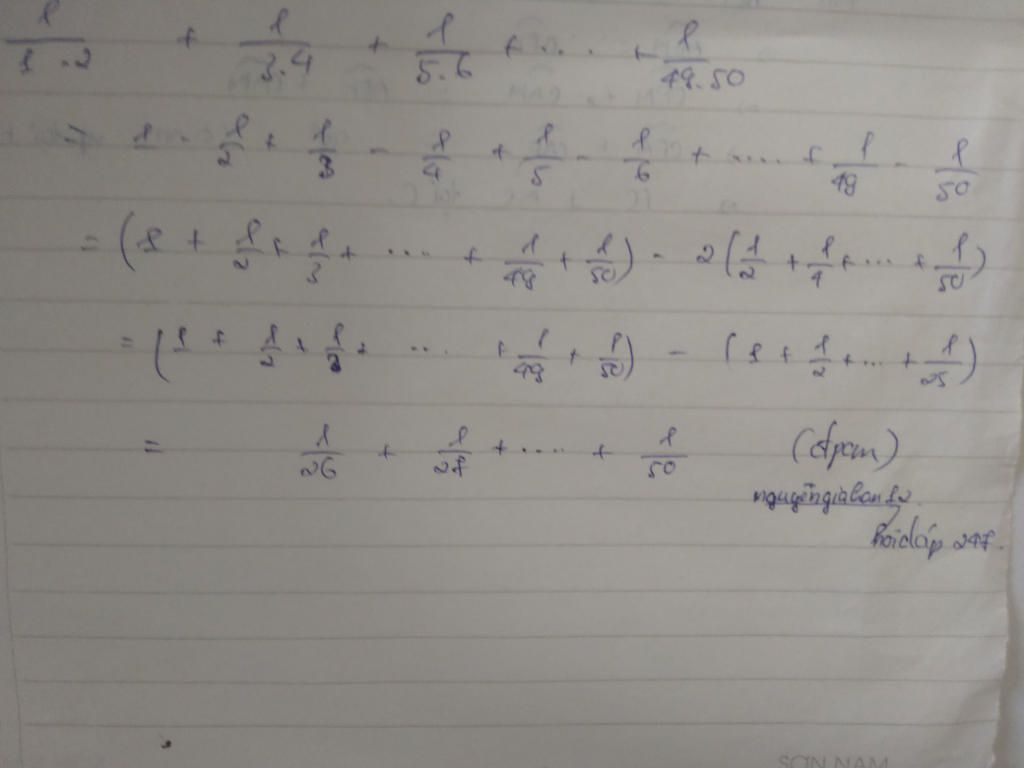 1/1.2 + 1/3.4 + 1/5.6 + .... + 1/49.50
= 1 - 1/2 + 1/3 - 1/4 + 1/5 - 1/6 + .... + 1/49 - 1/50
= (1 + 1/2 + 1/3 + .... + 1/49 + 1/50) - 2(1/2 + 1/4 + ... + 1/50)
= (1 + 1/2 + 1/3 + .... + 1/49 + 1/50) - (1 + 1/2 + ... + 1/25)
= 1/26 + 1/27 + .... + 1/50 (đpcm)
hoidap 247.
SƠN NAM